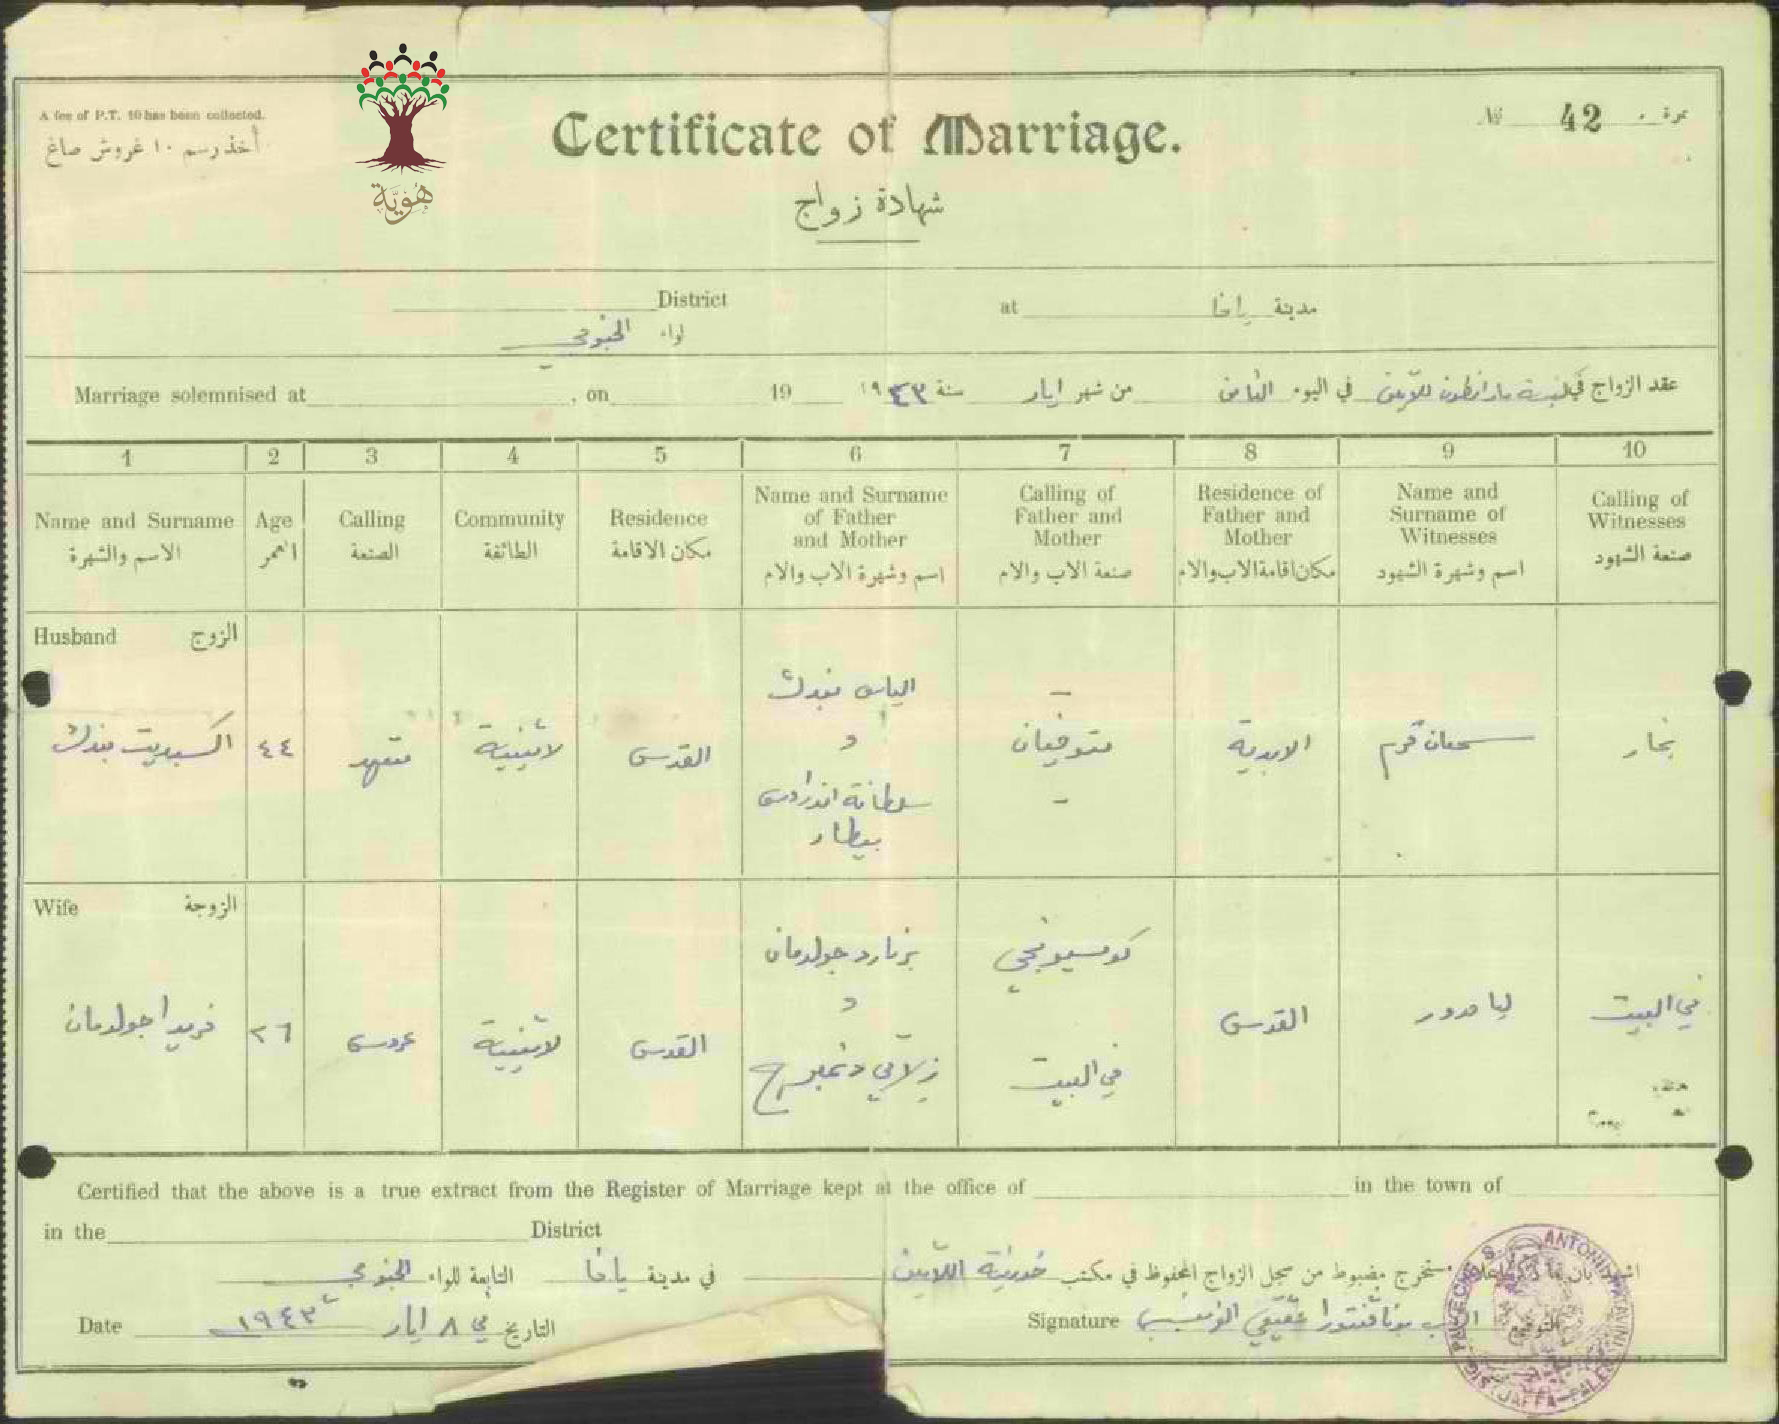 A fee of P.T. 10 has been collected.
أخذ رسم ١٠ غروش صاغ
هُوِيَّة
Certificate of Marriage.
شهادة زواج
№ 42 نمرة
District
لواء الجنوبي
at مدينة يافا
Marriage solemnised at , on 19
عقد الزواج في كنيسة مار انطون للاتين في اليوم الثامن من شهر ايار سنة ١٩٤٣
1 2 3 4 5 6 7 8 9 10
Name and Surname
الاسم والشهرة
Age
العمر
Calling
الصنعة
Community
الطائفة
Residence
مكان الاقامة
Name and Surname
of Father
and Mother
اسم وشهرة الاب والام
Calling of
Father and
Mother
صنعة الاب والام
Residence of
Father and
Mother
مكان اقامة الاب والام
Name and
Surname of
Witnesses
اسم وشهرة الشهود
Calling of
Witnesses
صنعة الشهود
Husband الزوج
بندك
٤٤
متعهد
لاتينية
القدس
الياس بندك
و
سلطانة اندراوس
بيطار
متوفيان
الابدية
سمعان قرم
نجار
Wife الزوجة
فريدا جولدمان
٢٦
عروس
لاتينية
القدس
برنارد جولدمان
و
كومسيونجي
في البيت
القدس
ليا
في البيت
Certified that the above is a true extract from the Register of Marriage kept at the office of in the town of
in the District
مستخرج مضبوط من سجل الزواج المحفوظ في مكتب خورنية اللاتين في مدينة يافا التابعة للواء الجنوبي
Signature بونافنتورا عقيقي الفرنسيسي التوقيع
Date ١٩٤٣ التاريخ في ٨ ايار
SIG. PAR. ECCL. S. ANTONII JAFFA